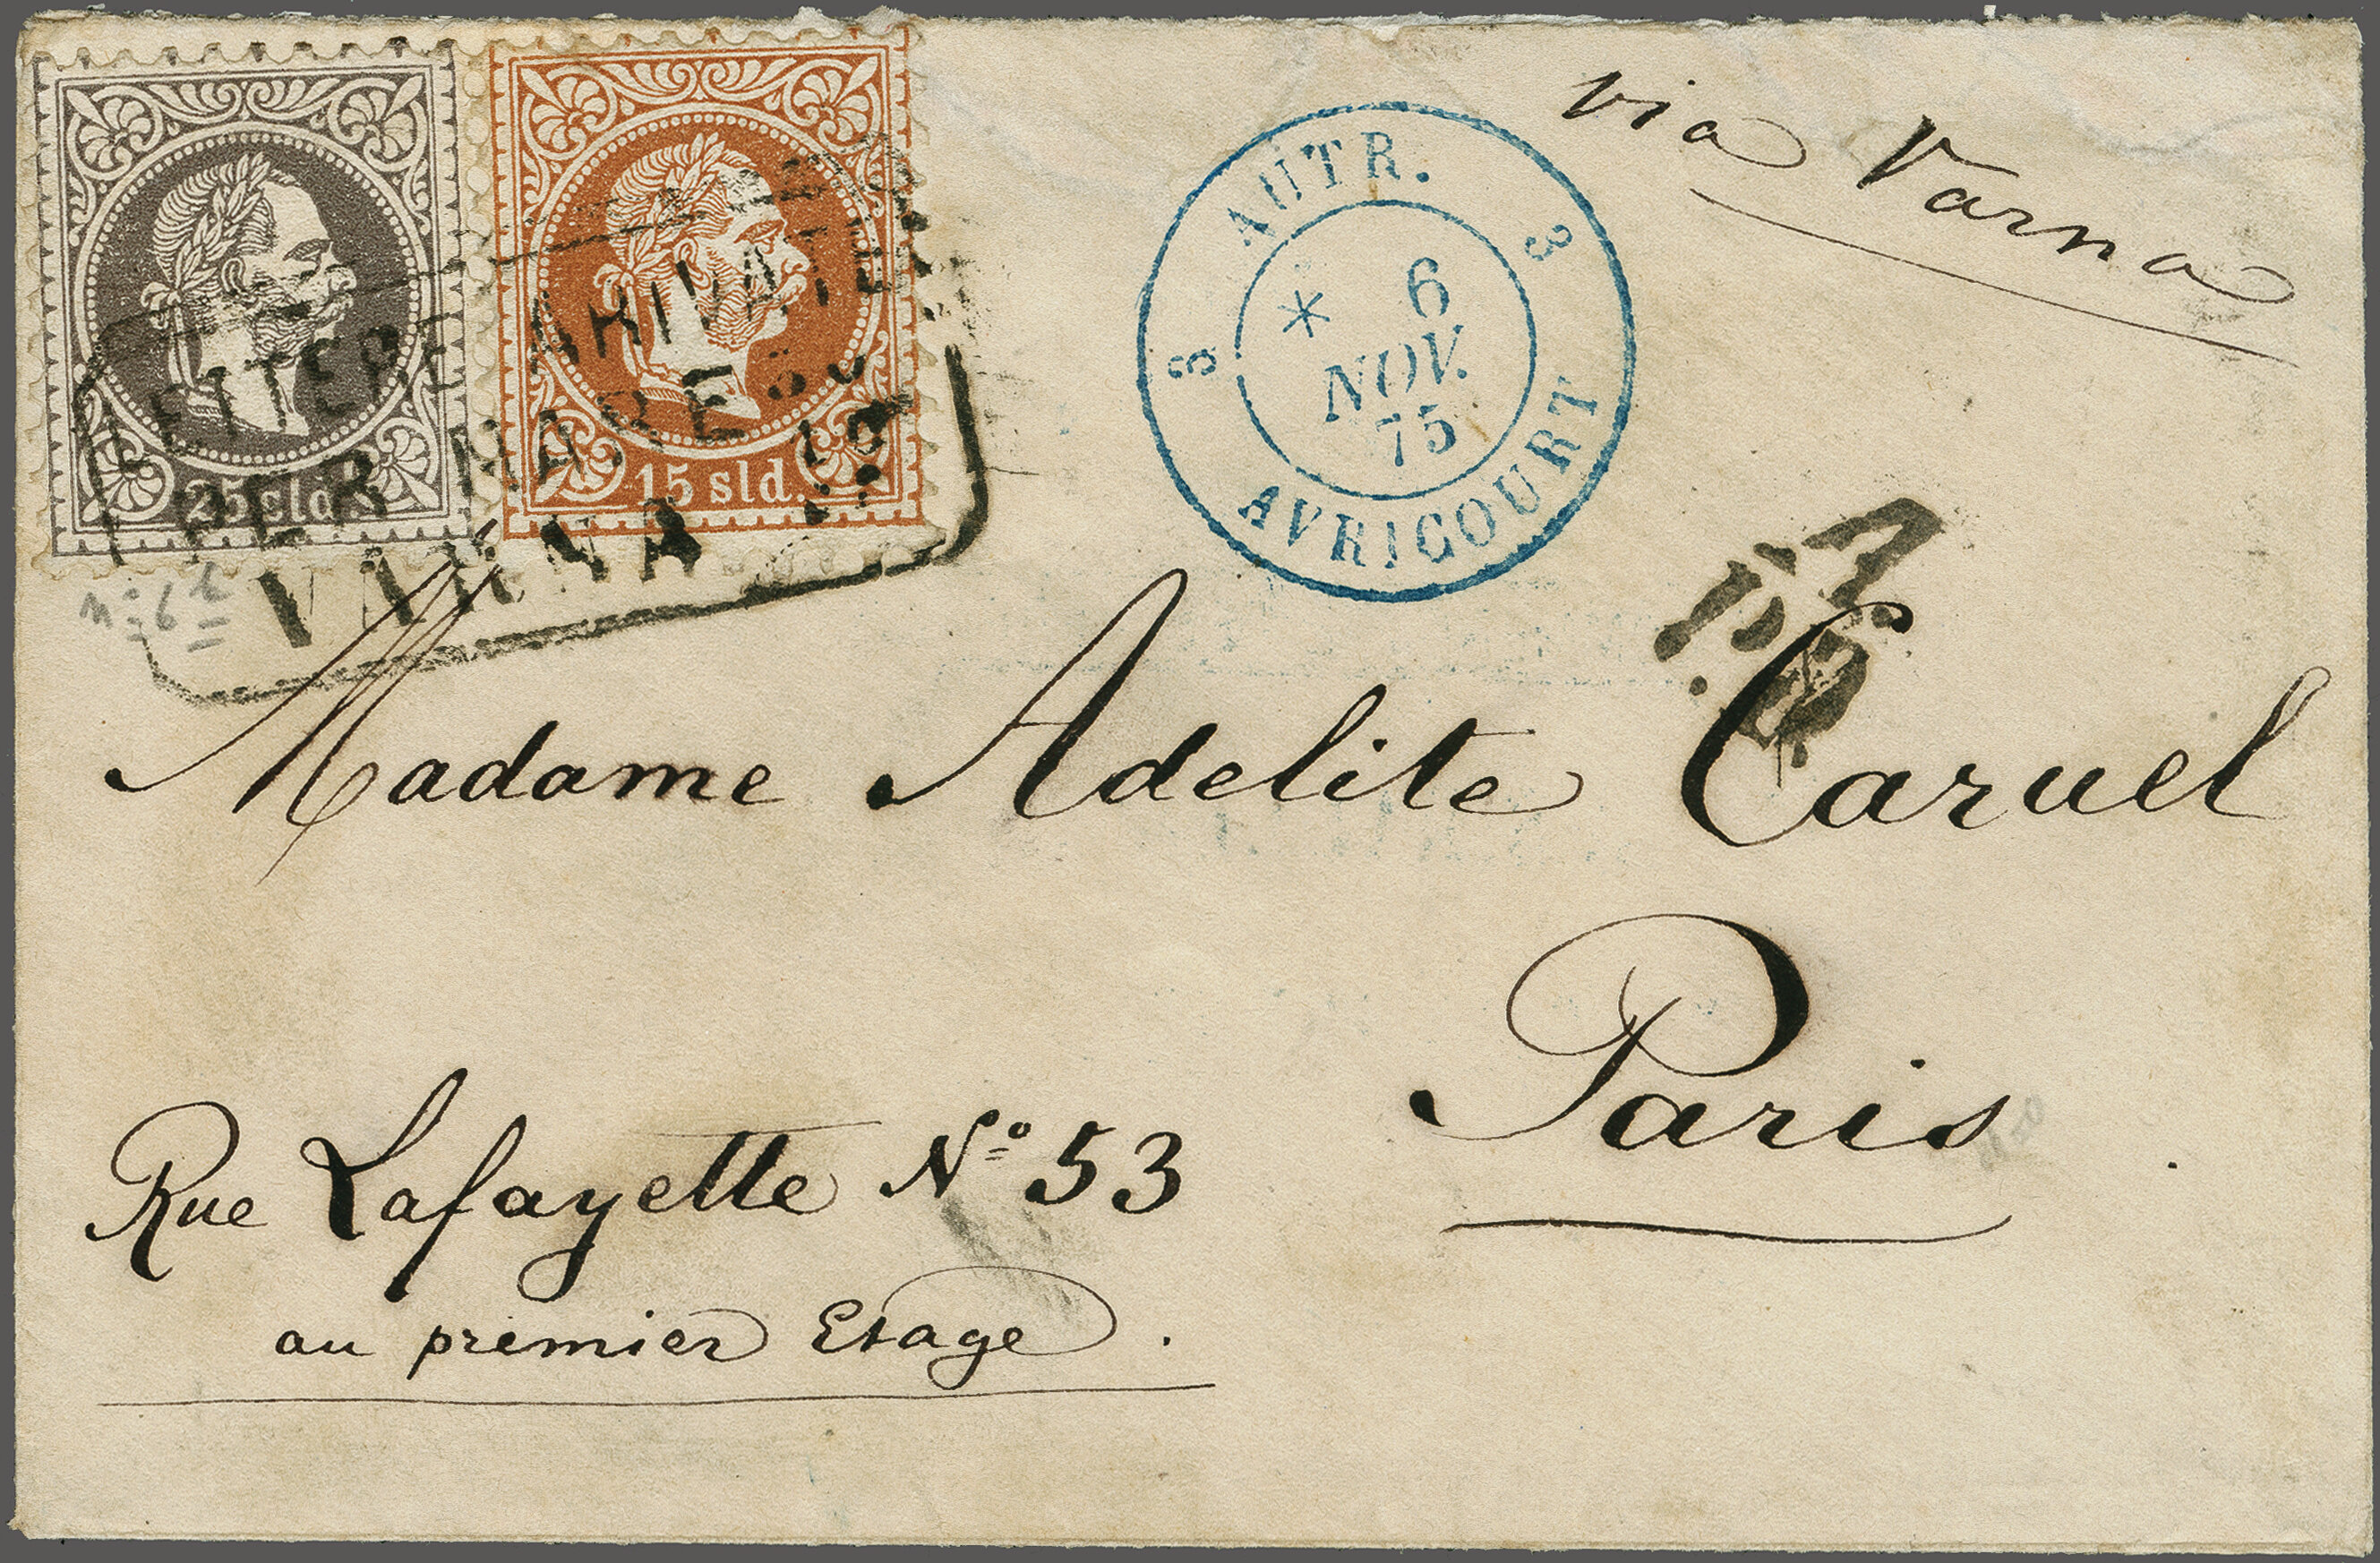 via Varna
25 sld.
15 sld.
LETTERE ARRIVATE
PER MARE
VARNA
AUTR.
3 3
* 6
NOV.
75
AVRICOURT
Madame Adelite Caruel
Paris
Rue Lafayette Nº 53
au premier Etage.